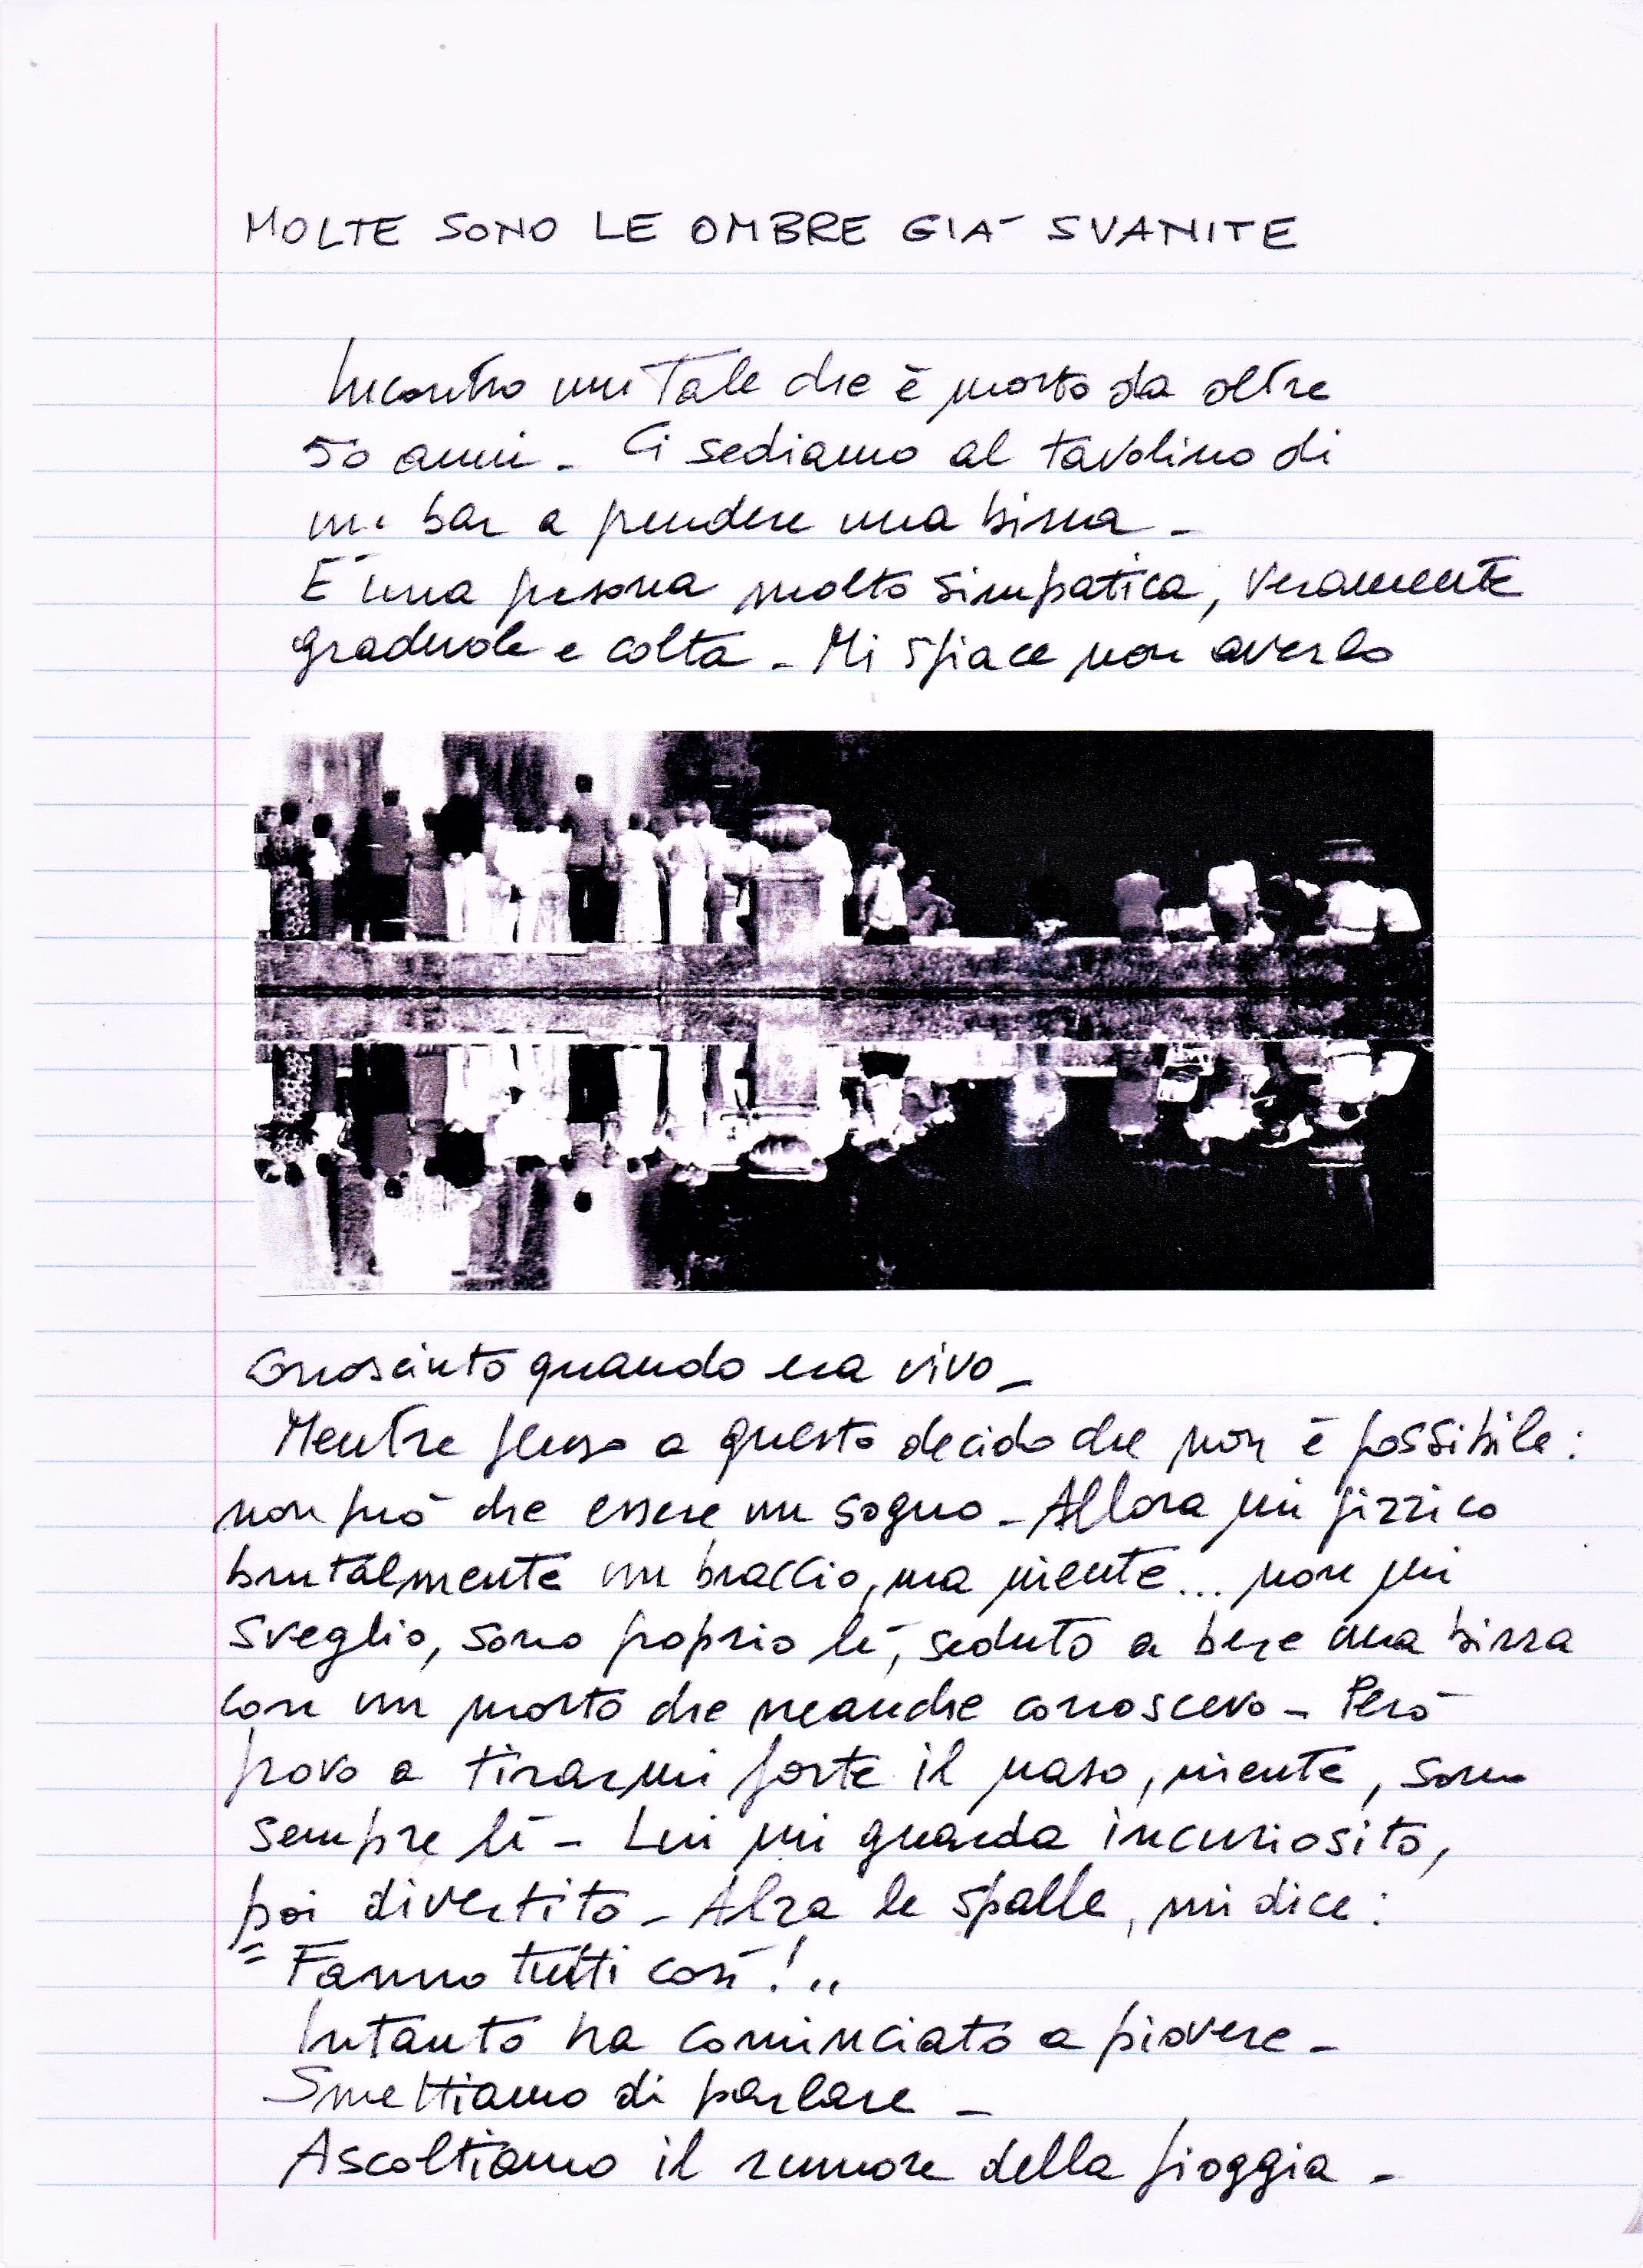 MOLTE SONO LE OMBRE GIA' SVANITE
Incontro un tale che è morto da oltre
50 anni - Ci sediamo al tavolino di
un bar a prendere una birra -
E' una persona molto simpatica, veramente
gradevole e colta - Mi spiace non averlo
conosciuto quando era vivo -
Mentre penso a questo decido che non è possibile:
non può che essere un sogno - Allora mi pizzico
brutalmente un braccio, ma niente... non mi
sveglio, sono proprio lì, seduto a bere una birra
con un morto che neanche conoscevo - Però
provo a tirarmi forte il naso, niente, sono
sempre lì - Lui mi guarda incuriosito,
poi divertito - Alza le spalle, mi dice:
"Fanno tutti così!"
Intanto ha cominciato a piovere -
Smettiamo di parlare -
Ascoltiamo il rumore della pioggia -